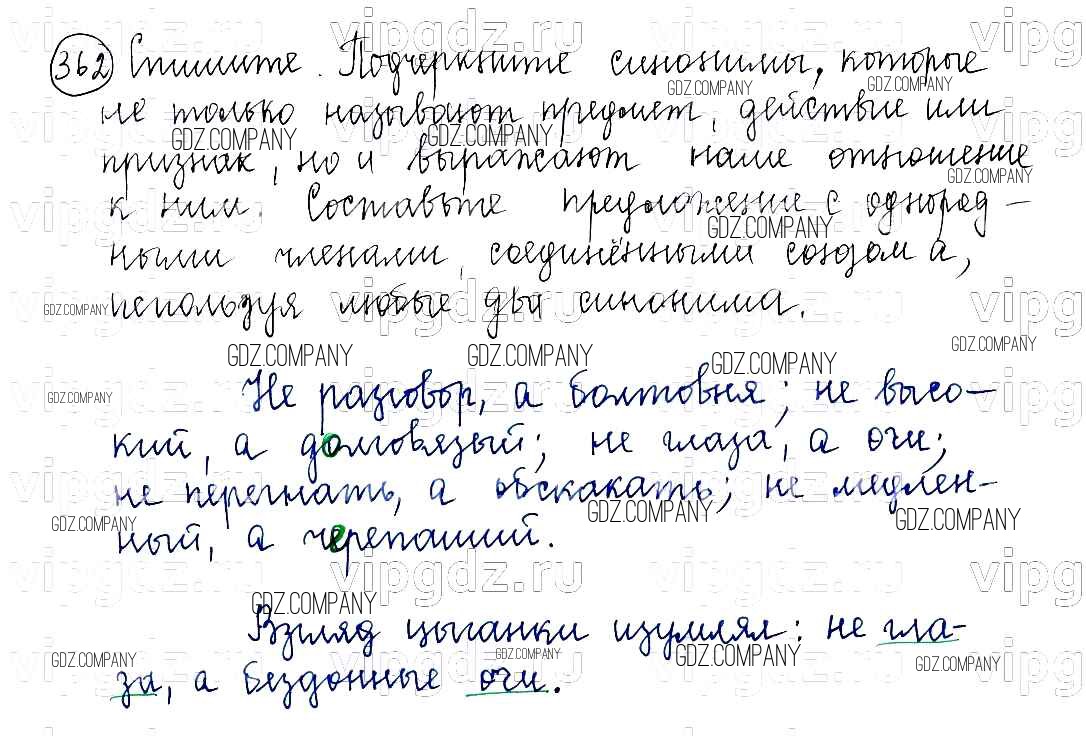 362 Спишите. Подчеркните синонимы, которые
не только называют предмет, действие или
признак, но и выражают наше отношение
к ним. Составьте предложение с однород-
ными членами, соединёнными союзом а,
используя любые два синонима.
Не разговор, а болтовня; не высо-
кий, а долговязый; не глаза, а очи;
не перегнать, а обскакать; не медлен-
ный, а черепаший.
Взгляд цыганки изумлял: не гла-
за, а бездонные очи.